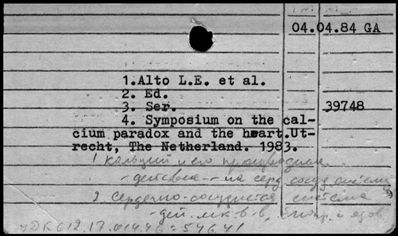 04.04.84 GA
1.Alto L.E. et al.
2. Ed.
3. Ser.
39748
4. Symposium on the cal-
cium paradox and the heart.Ut-
recht, The Netherland. 1983.
1 кальций и его производные
- действие - на серд. сосуд. систему
2 сердечно-сосудистая система
- дей. лек. в-в,